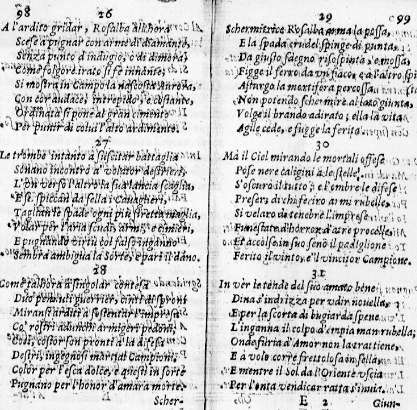 98
26
A l'ardito gridar, Rosalba allhora
Scese à pugnar con arme di diamante,
Senza punto d'indugio, ò di dimora,
Come folgore irato si fè innante;
Si mostra in Campo la nascosta Aurora,
Con cor audace, intrepido, e costante,
Ordinata si pone al gran cimento
Per punir di colui l'alto ardimento.
27
Le trombe intanto à suscitar battaglia
Sonano incontro à volator destriero,
L'un verso l'altro la sua lancia scaglia,
E si spiccan da sella i Cavaglieri,
Tagliar le spade ogni più stretta maglia,
Volar per l'aria scudi, armi, e cimieri,
E pugnando virtù col falso inganno
Sembra ambigua la Sorte, e pari il danno.
28
Come tal'hora à singolar contesa
Duo penuti guerrier, cinti di sproni
Miransi arditi à sostentar l'impresa
Co' rostri adunchi armigeri pedoni;
Così, costor son pronti à la difesa
Destri, ingegnosi martial Campioni,
Color per l'esca dolce, e questi in sorte
Pugnano per l'honor d'amara morte.
Scher-
29
99
Schermitrice Rosalba arma la possa,
E la spada crudel spinge di punta,
Da giusto sdegno risospinta, e mossa,
Figge il ferro da un fianco, e à l'altro spunta
Asturgo la mortifera percossa
Non potendo schermire al lato giunta,
Volge il brando adirato; ella la vita
Agile cede, e fugge la ferita.
30
Mà il Ciel mirando le mortali offese
Pose nere caligini à le stelle,
S'oscurò il tutto; e l'ombre le difese
Preser, di chi fè ciro ai mi rubelle.
Si velaro di tenebre l'imprese
Funestate d'horror d'atre procelle.
Et accolse in suo seno il padiglione
Ferito il vinto, e'l vincitor Campione.
31
In vèr le tende del suo amato bene
Dina s'indrizza per udir novella,
E per la scorta di bugiarda spene
L'inganna il colpo d'empia man rubella;
Onde furia d'Amor non la rattiene,
E à volo corre frettolosa in sella,
E mentre il Sol da l'Oriente uscia
Per l'onta vendicar ratta s'invia.
E 2
Giun-